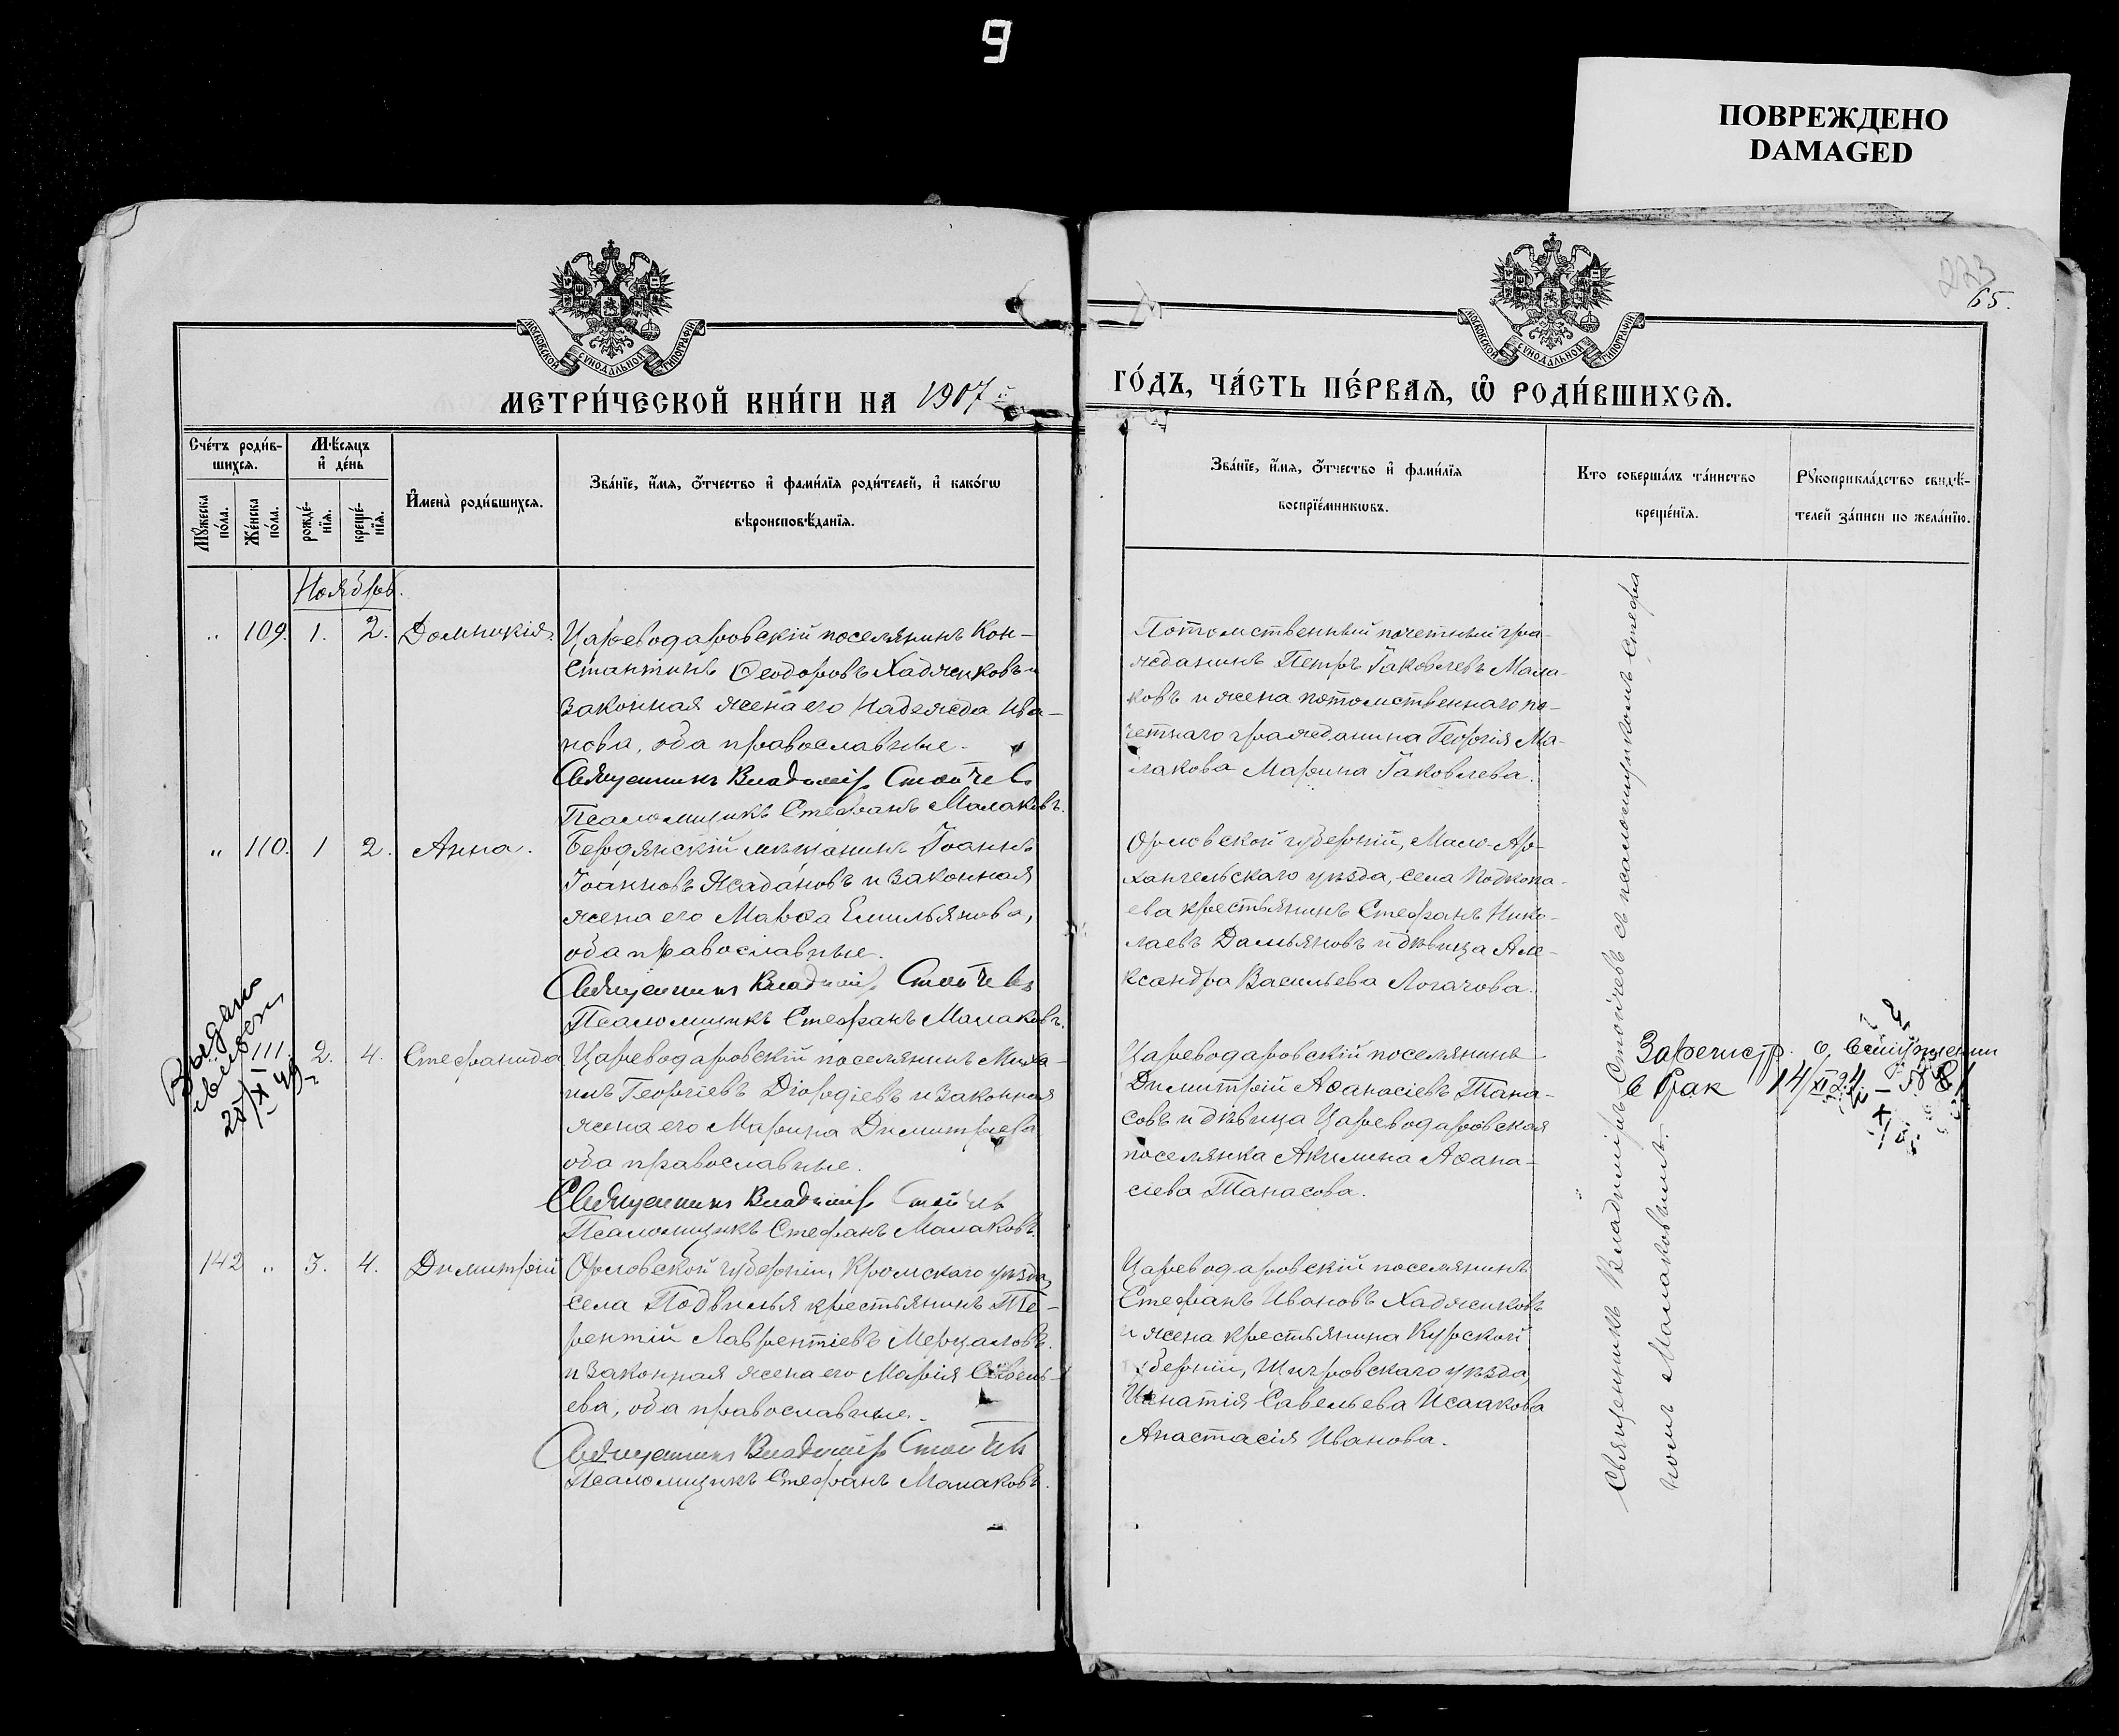 9
ПОВРЕЖДЕНО
DAMAGED
65.
МОСКОВСКОЙ СѴНОДАЛЬНОЙ ТИПОГРАФІИ
МОСКОВСКОЙ СѴНОДАЛЬНОЙ ТИПОГРАФІИ
МЕТРИ́ЧЕСКОЙ КНИ́ГИ НА 1907 й
ГО́ДЪ, ЧА́СТЬ ПЕ́РВАѦ, Ѡ҆ РОДИ́ВШИХСѦ.
Сче́тъ роди́в-
шихсѧ.
Мꙋ́жеска по́ла.
Же́нска по́ла.
Мѣ́сѧцъ
и҆ де́нь
рожде́-
нїѧ.
креще́-
нїѧ.
И҆мена̀ роди́вшихсѧ.
Зва́нїе, и҆́мѧ, ѻ҆́тчество и҆ фами́лїѧ роди́телей, и҆ како́гѡ
вѣроисповѣ́данїѧ.
Зва́нїе, и҆́мѧ, ѻ҆́тчество и҆ фами́лїѧ
воспрїе́мникѡвъ.
Кто соверша́лъ та́инство
креще́нїѧ.
Рꙋкоприкла́дство свидѣ́-
телей за́писи по жела́нїю.
Ноябрь.
" 109. 1. 2. Домникія.
Царевода­ровскій поселянинъ Кон-
стантинъ Ѳеодоровъ Хаджиковъ и
законная жена его Надежда Ива-
нова, оба православные.
Священникъ Владиміръ Стойчевъ
Псаломщикъ Стефанъ Малаковъ.
Потомственный почетный гра-
жданинъ Петръ Іаковлевъ Мала-
ковъ и жена потомственнаго по-
четнаго гражданина Георгія Ма-
лакова Марина Іаковлева.
" 110. 1 2. Анна.
Бердянскій мѣщанинъ Іоаннъ
Іоанновъ Жадановъ и законная
жена его Марѳа Емильянова,
оба православные.
Священникъ Владиміръ Стойчевъ
Псаломщикъ Стефанъ Малаковъ.
Орловской губерніи, Мало-Ар-
хангельскаго уѣзда, села Подкопа-
ева крестьянинъ Стефанъ Нико-
лаевъ Дамьяновъ и дѣвица Але-
ксандра Васильева Логачова.
Выдано
25/XI 49
111. 2. 4. Стефанида
Цареводаровскій поселянинъ Миха-
илъ Георгіевъ Діордіевъ и законная
жена его Марина Димитріева
оба православные.
Священникъ Владиміръ Стойчевъ
Псаломщикъ Стефанъ Малаковъ.
Цареводаровскій поселянинъ
Димитрій Аѳанасіевъ Тана-
совъ и дѣвица Цареводаровская
поселянка Акилина Аѳана-
сіева Танасова.
Зарегистр. о вступлении
в брак 14/XI 24
142 " 3. 4. Димитрій
Орловской губерніи, Кромскаго уѣзда,
села Подвилья крестьянинъ Те-
рентій Лаврентіевъ Мерцаловъ
и законная жена его Марія Савель-
ева, оба православные.
Священникъ Владиміръ Стойчевъ
Псаломщикъ Стефанъ Малаковъ.
Цареводаровскій поселянинъ
Стефанъ Ивановъ Хаджиковъ
и жена крестьянина Курской
губерніи, Щигровскаго уѣзда,
Игнатія Савельева Исаакова
Анастасія Иванова.
Священникъ Владиміръ Стойчевъ съ псаломщикомъ Стефа
номъ Малаковымъ.